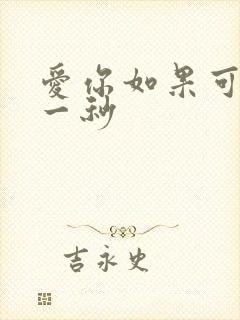 愛你如果可
一秒
吉永史